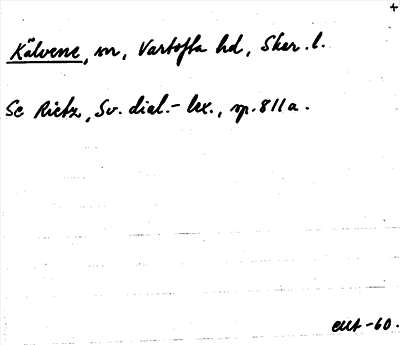 +
Kälvene, sn, Vartofta hd, Skar. l.
Se Rietz, Sv. dial.-lex., sp. 811a.
eut -60.